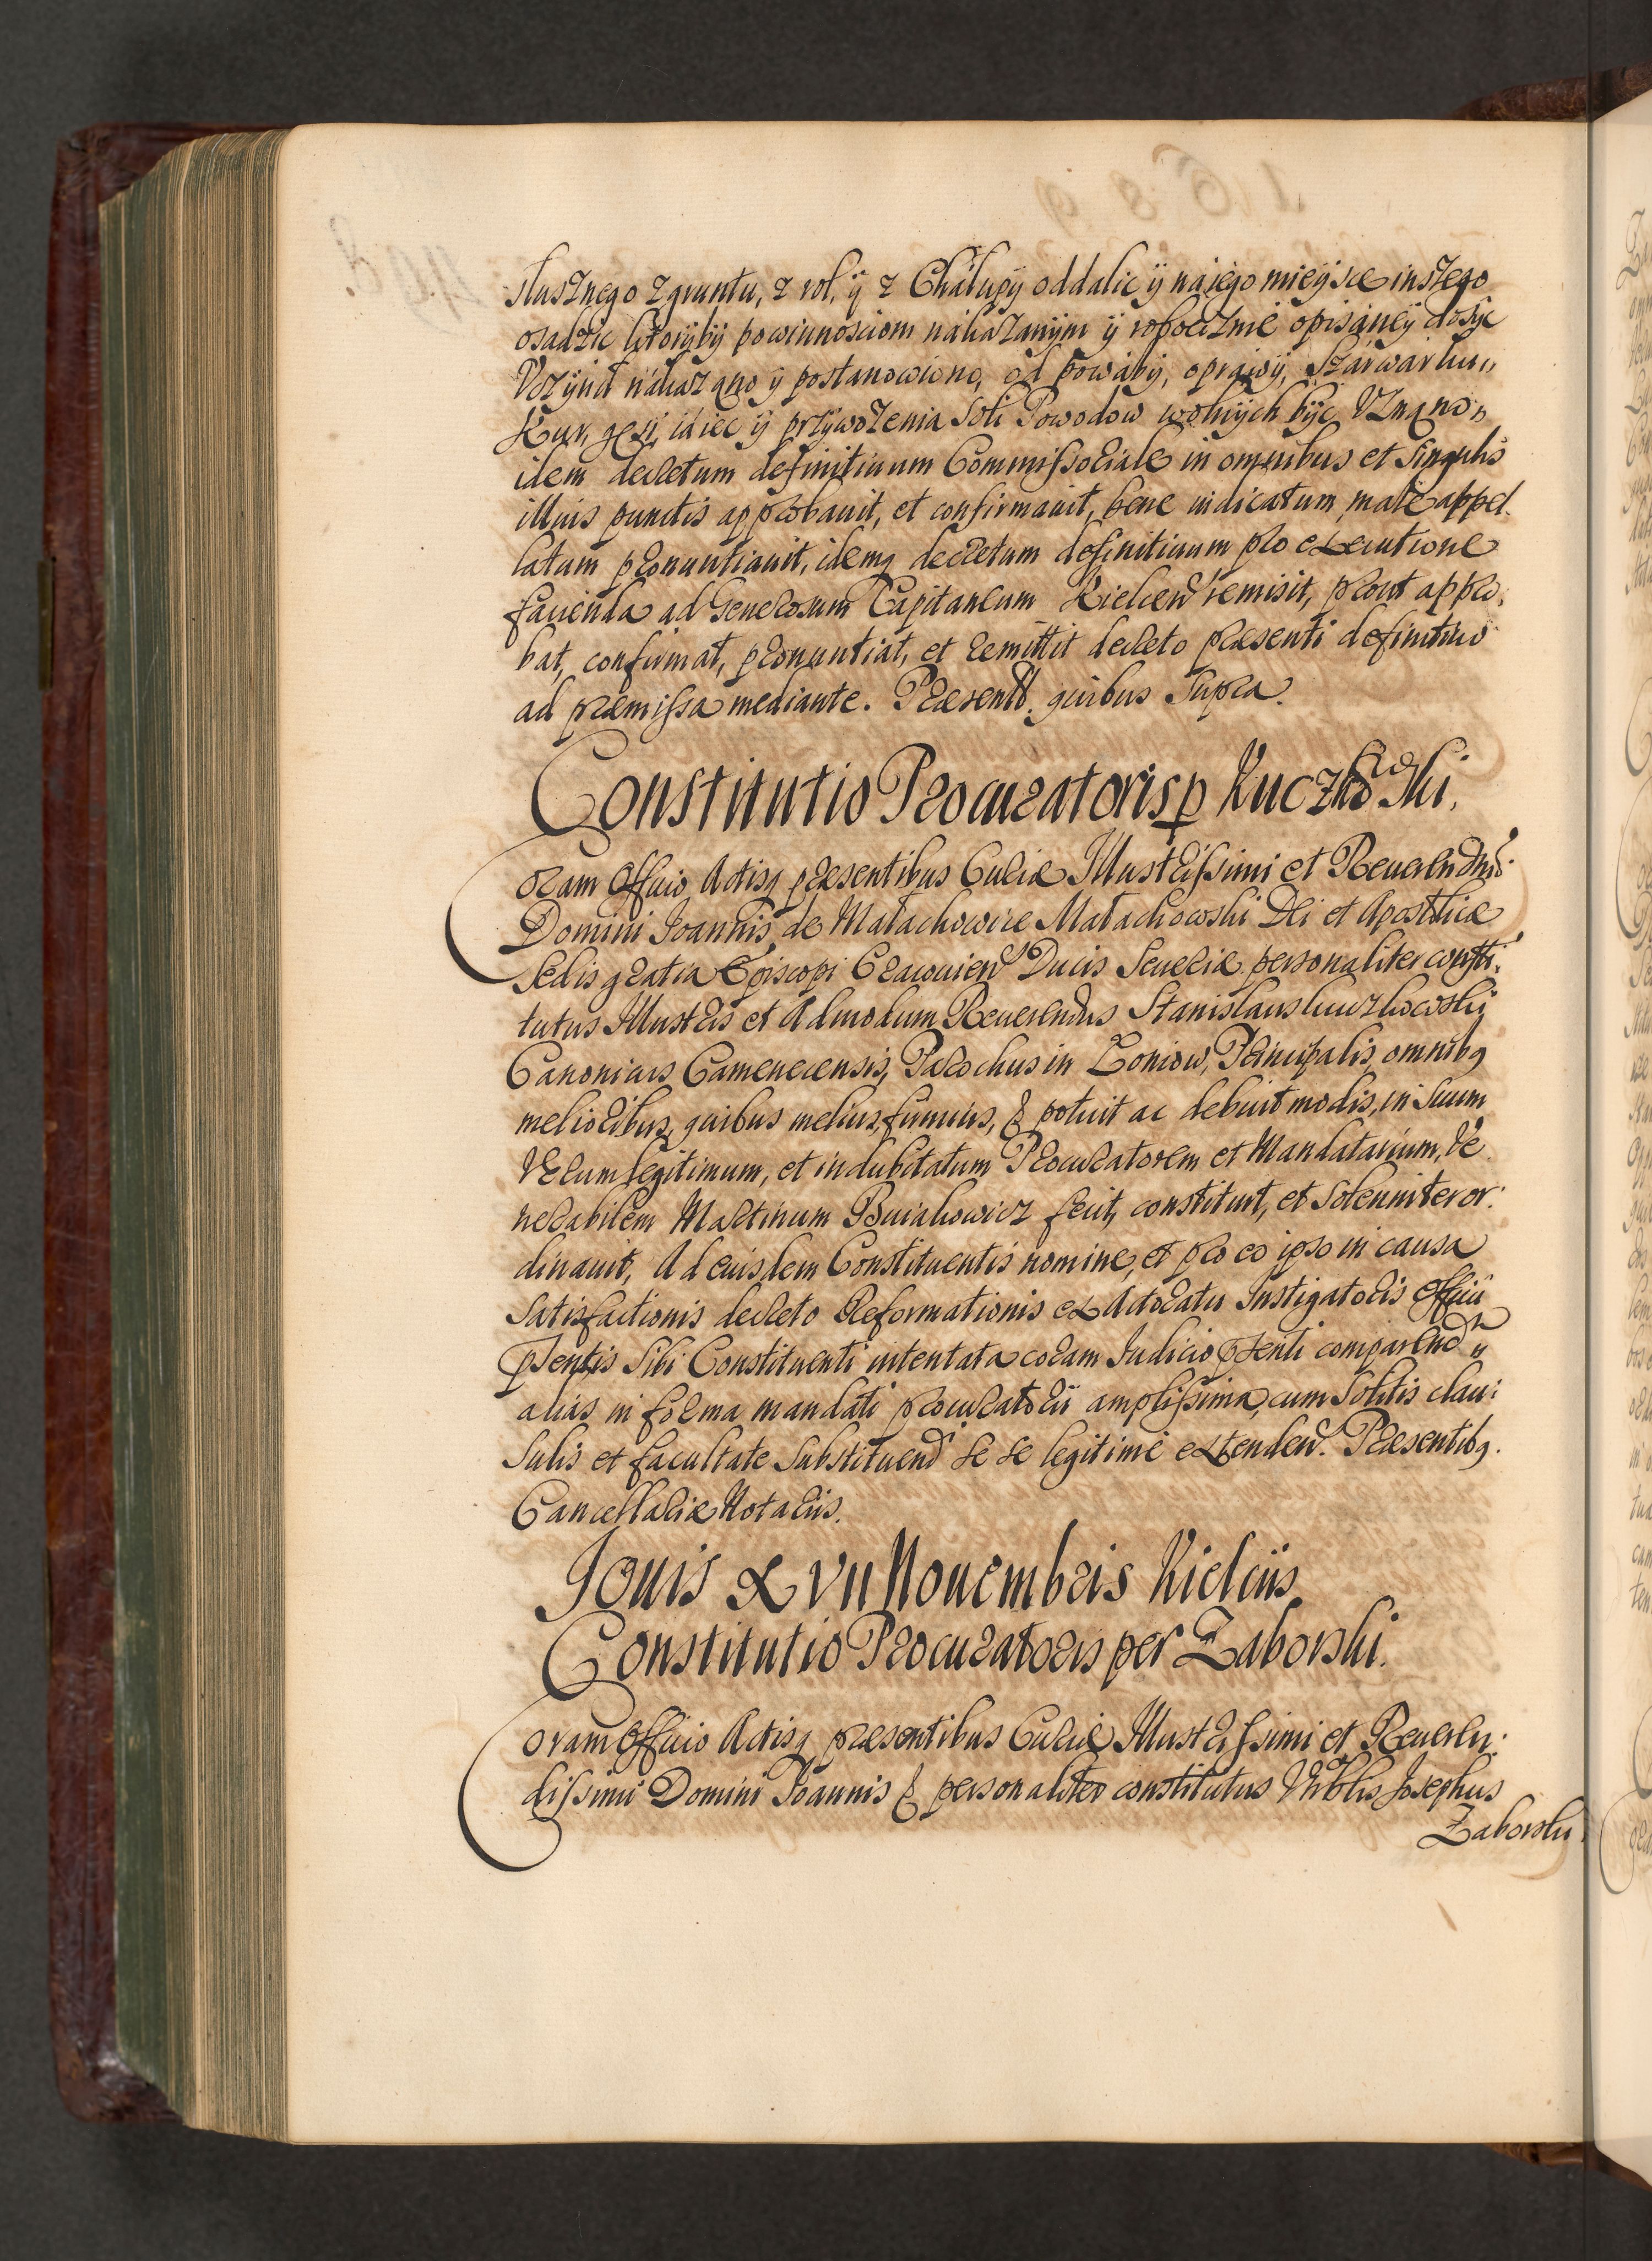 słusznego z gruntu, z rol, y z Chałupy oddalic y na iego mieysce inszego
osadzic ktoryby powinnosciom nakazanym y robociznie opisaney dosyc
Vczynił nakazano y postanowiono, od powaby, oprawy, Szarwarku,,
Kur, gęsi, iaiec y przywozenia Soli Powodow wolnych byc Vznano,,
idem decretum definitiuum Commissoriale in omnibus et singulis
illius punctis approbauit, et confirmauit, bene iudicatum, male appel
latum pronuntiauit, idemq decretum definitiuum pro executione
facienda ad Generosum Capitaneum Kielcen remisit, prout appro,
bat, confirmat, pronuntiat, et remittit decreto praesenti definitiuo
ad praemissa mediante. Praesentib. quibus supra.
Constitutio Procuratoris p Kuczkowski.
Coram Officio Actisq praesentibus Curiae Illustrissimi et Reuerendmi
Domini Joannis de Małachowice Małachowski Dei et Apostolicae
Sedis gratia Episcopi Cracouien Ducis Seueriae personaliter consti,
tutus Illustris et Admodum Reuerendus Stanislaus Kuczkowski
Canonicus Camenecensis, Parochus in Koniow, Principalis, omnibq
melioribus, quibus melius, firmius, & potuit ac debuit modis, in suum
Verum legitimum, et indubitatum Procuratorem et Mandatarium, Ve
nerabilem Martinum Buiakowicz fecit, constituit, et solenniter or:
dinauit, Ad eiusdem Constituentis nomine, et pro eo ipso in causa
satisfactionis decreto Reformationis ex Actoratu Instigatoris Officii
psentis sibi Constituenti intentata coram Iudicio psenti comparend n
alias in forma mandati procuratorii amplissima, cum solitis clau:
sulis et facultate substituend se se legitime extenden. Praesentibq.
Cancellariae Notariis.
Iouis XVII Nouembris Kielciis
Constitutio Procuratoris per Zaborski.
Coram Officio Actisq praesentibus Curiae Illustrissimi et Reueren:
dissimi Domini Joannis & personaliter constitutus Nobilis Josephus
Zaborski